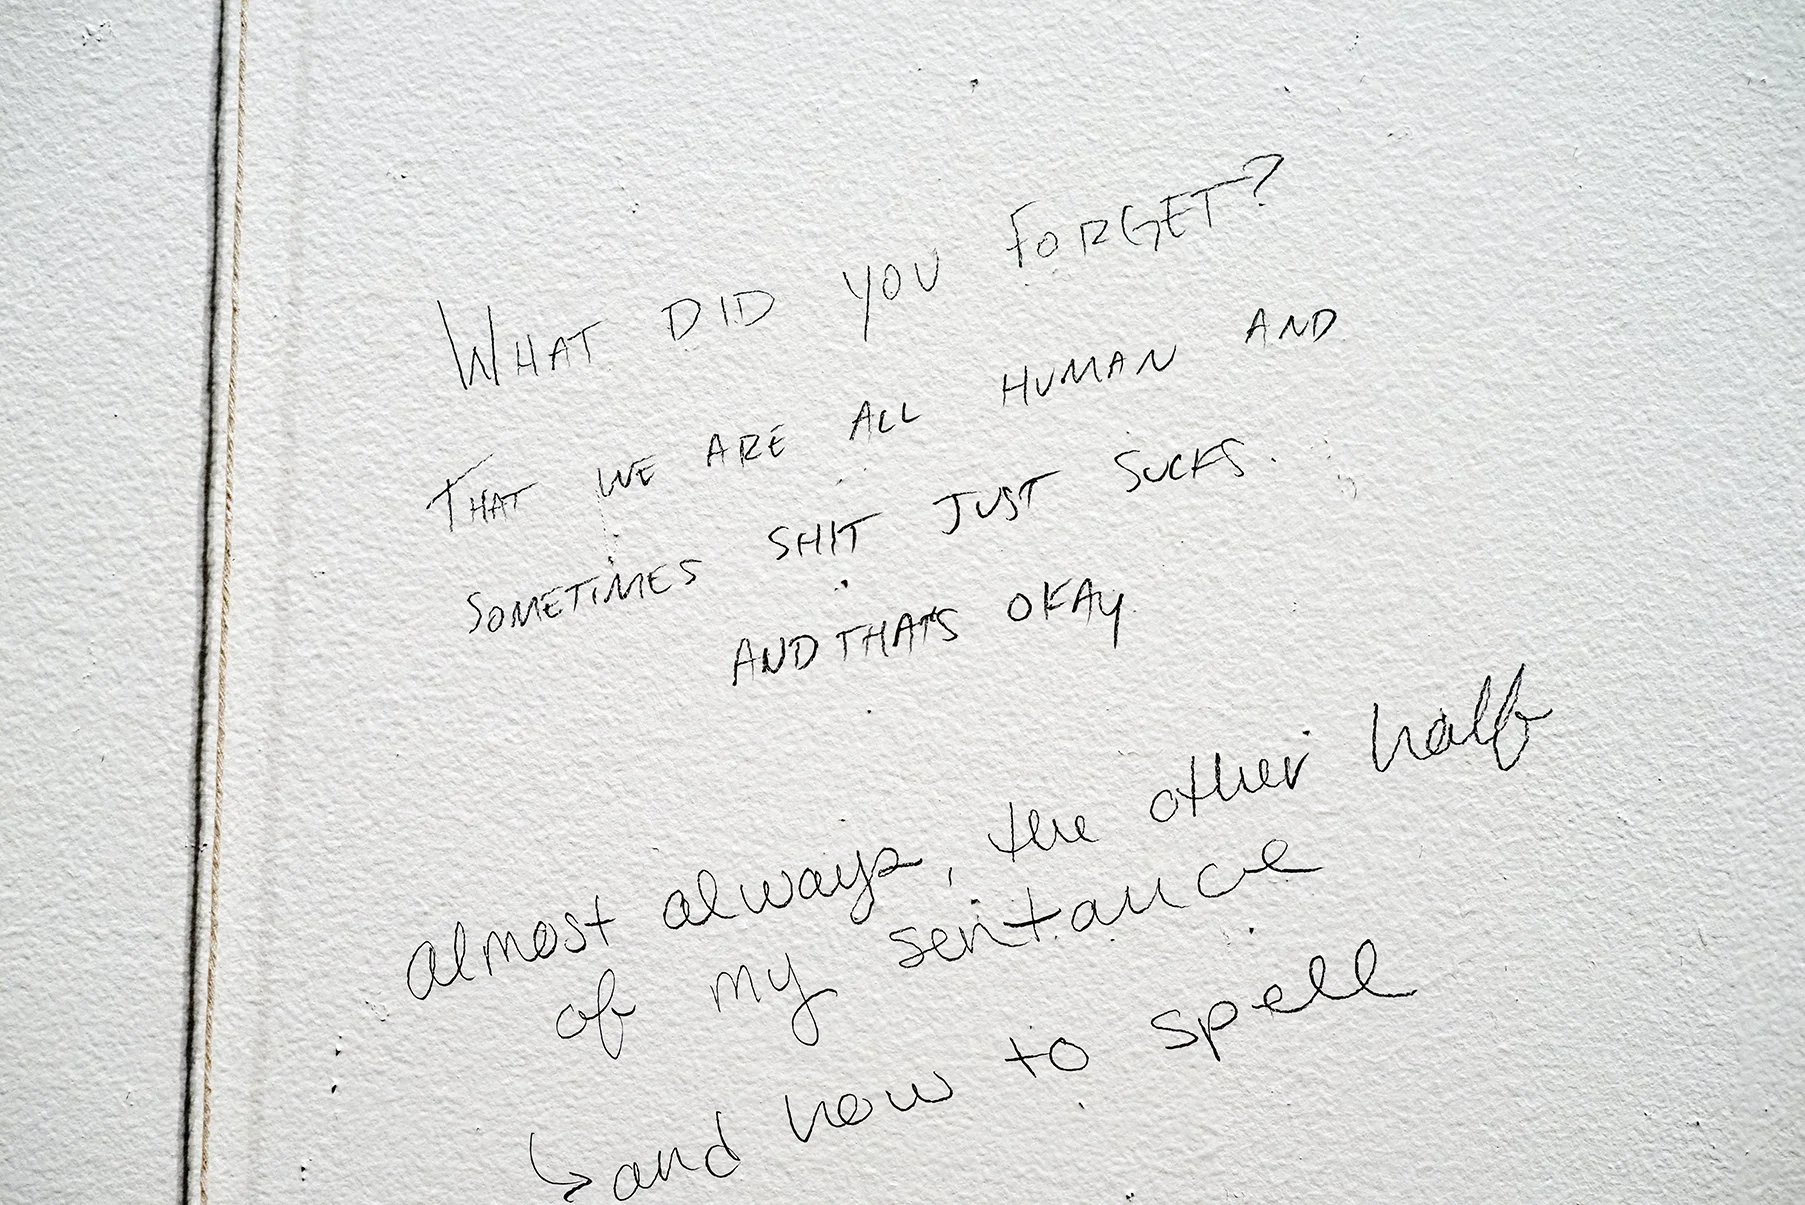 WHAT DID YOU FORGET?
THAT WE ARE ALL HUMAN AND
SOMETIMES SHIT JUST SUCKS.
AND THATS OKAY
almost always, the other half
of my sentance
↳ and how to spell